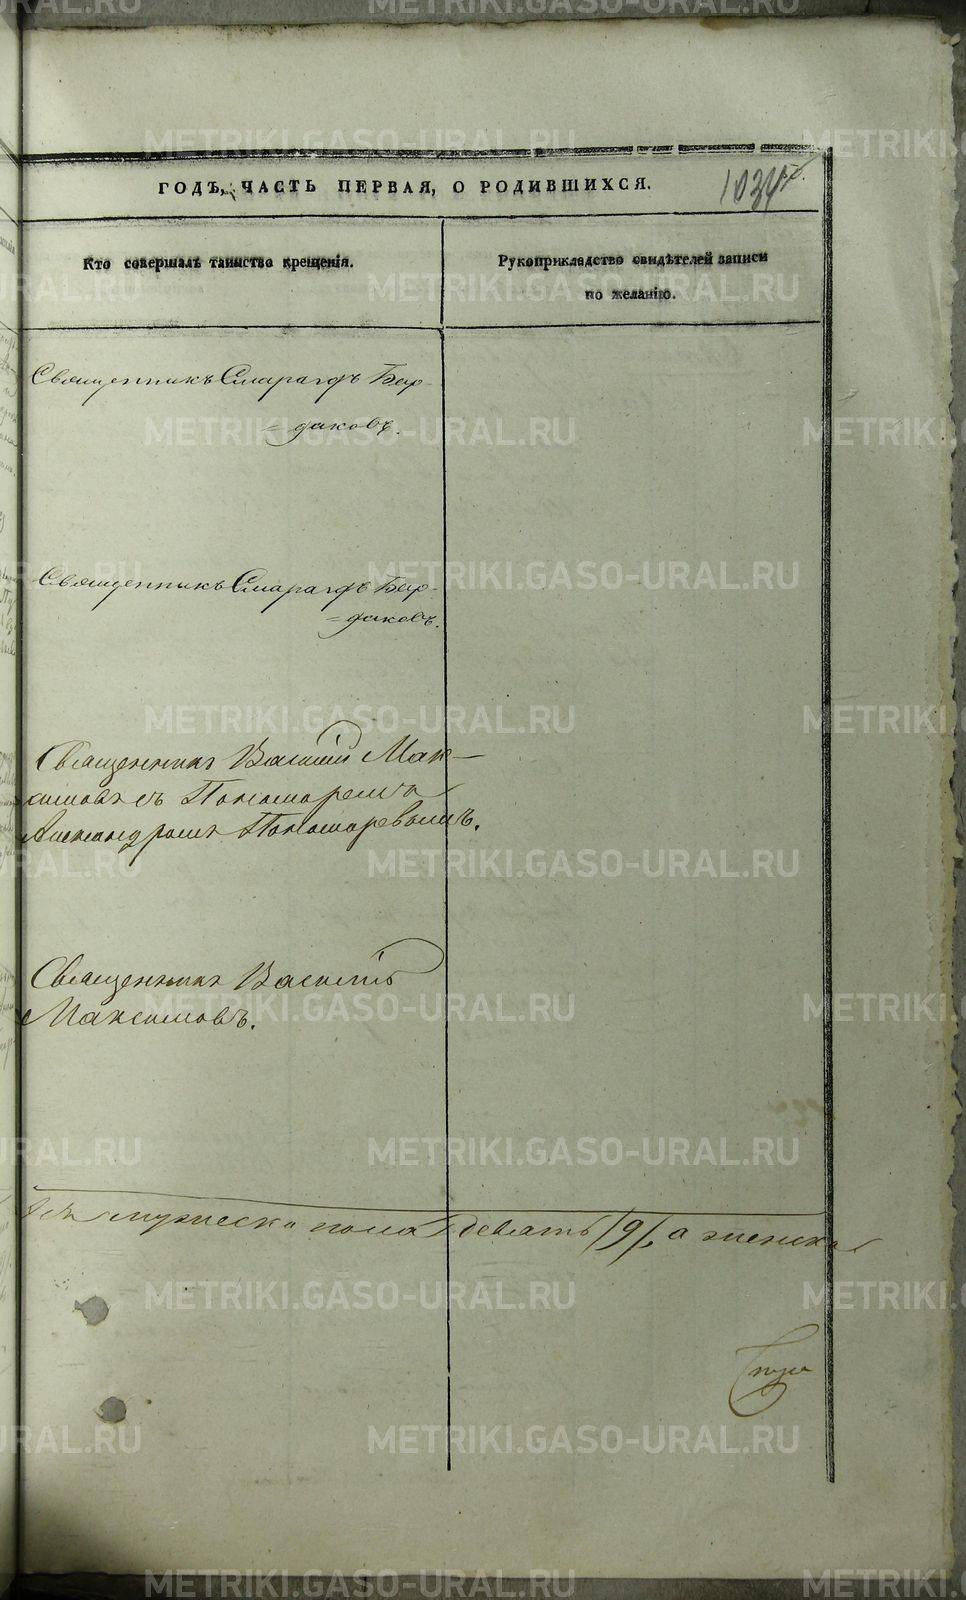 ГОДЪ, ЧАСТЬ ПЕРВАЯ, О РОДИВШИХСЯ.
1034
Кто совершалъ таинство крещенія.
Рукоприкладство свидѣтелей записи
по желанію.
Священникъ Смарагдъ Бар-
=даковъ.
Священникъ Смарагдъ Бар-
=даковъ.
Священникъ Василій Мак-
симовъ съ Пономаремъ
Александромъ Пономаревымъ.
Священникъ Василій
Максимовъ.
мужеска пола девять /9/, а женска
METRIKI.GASO-URAL.RU